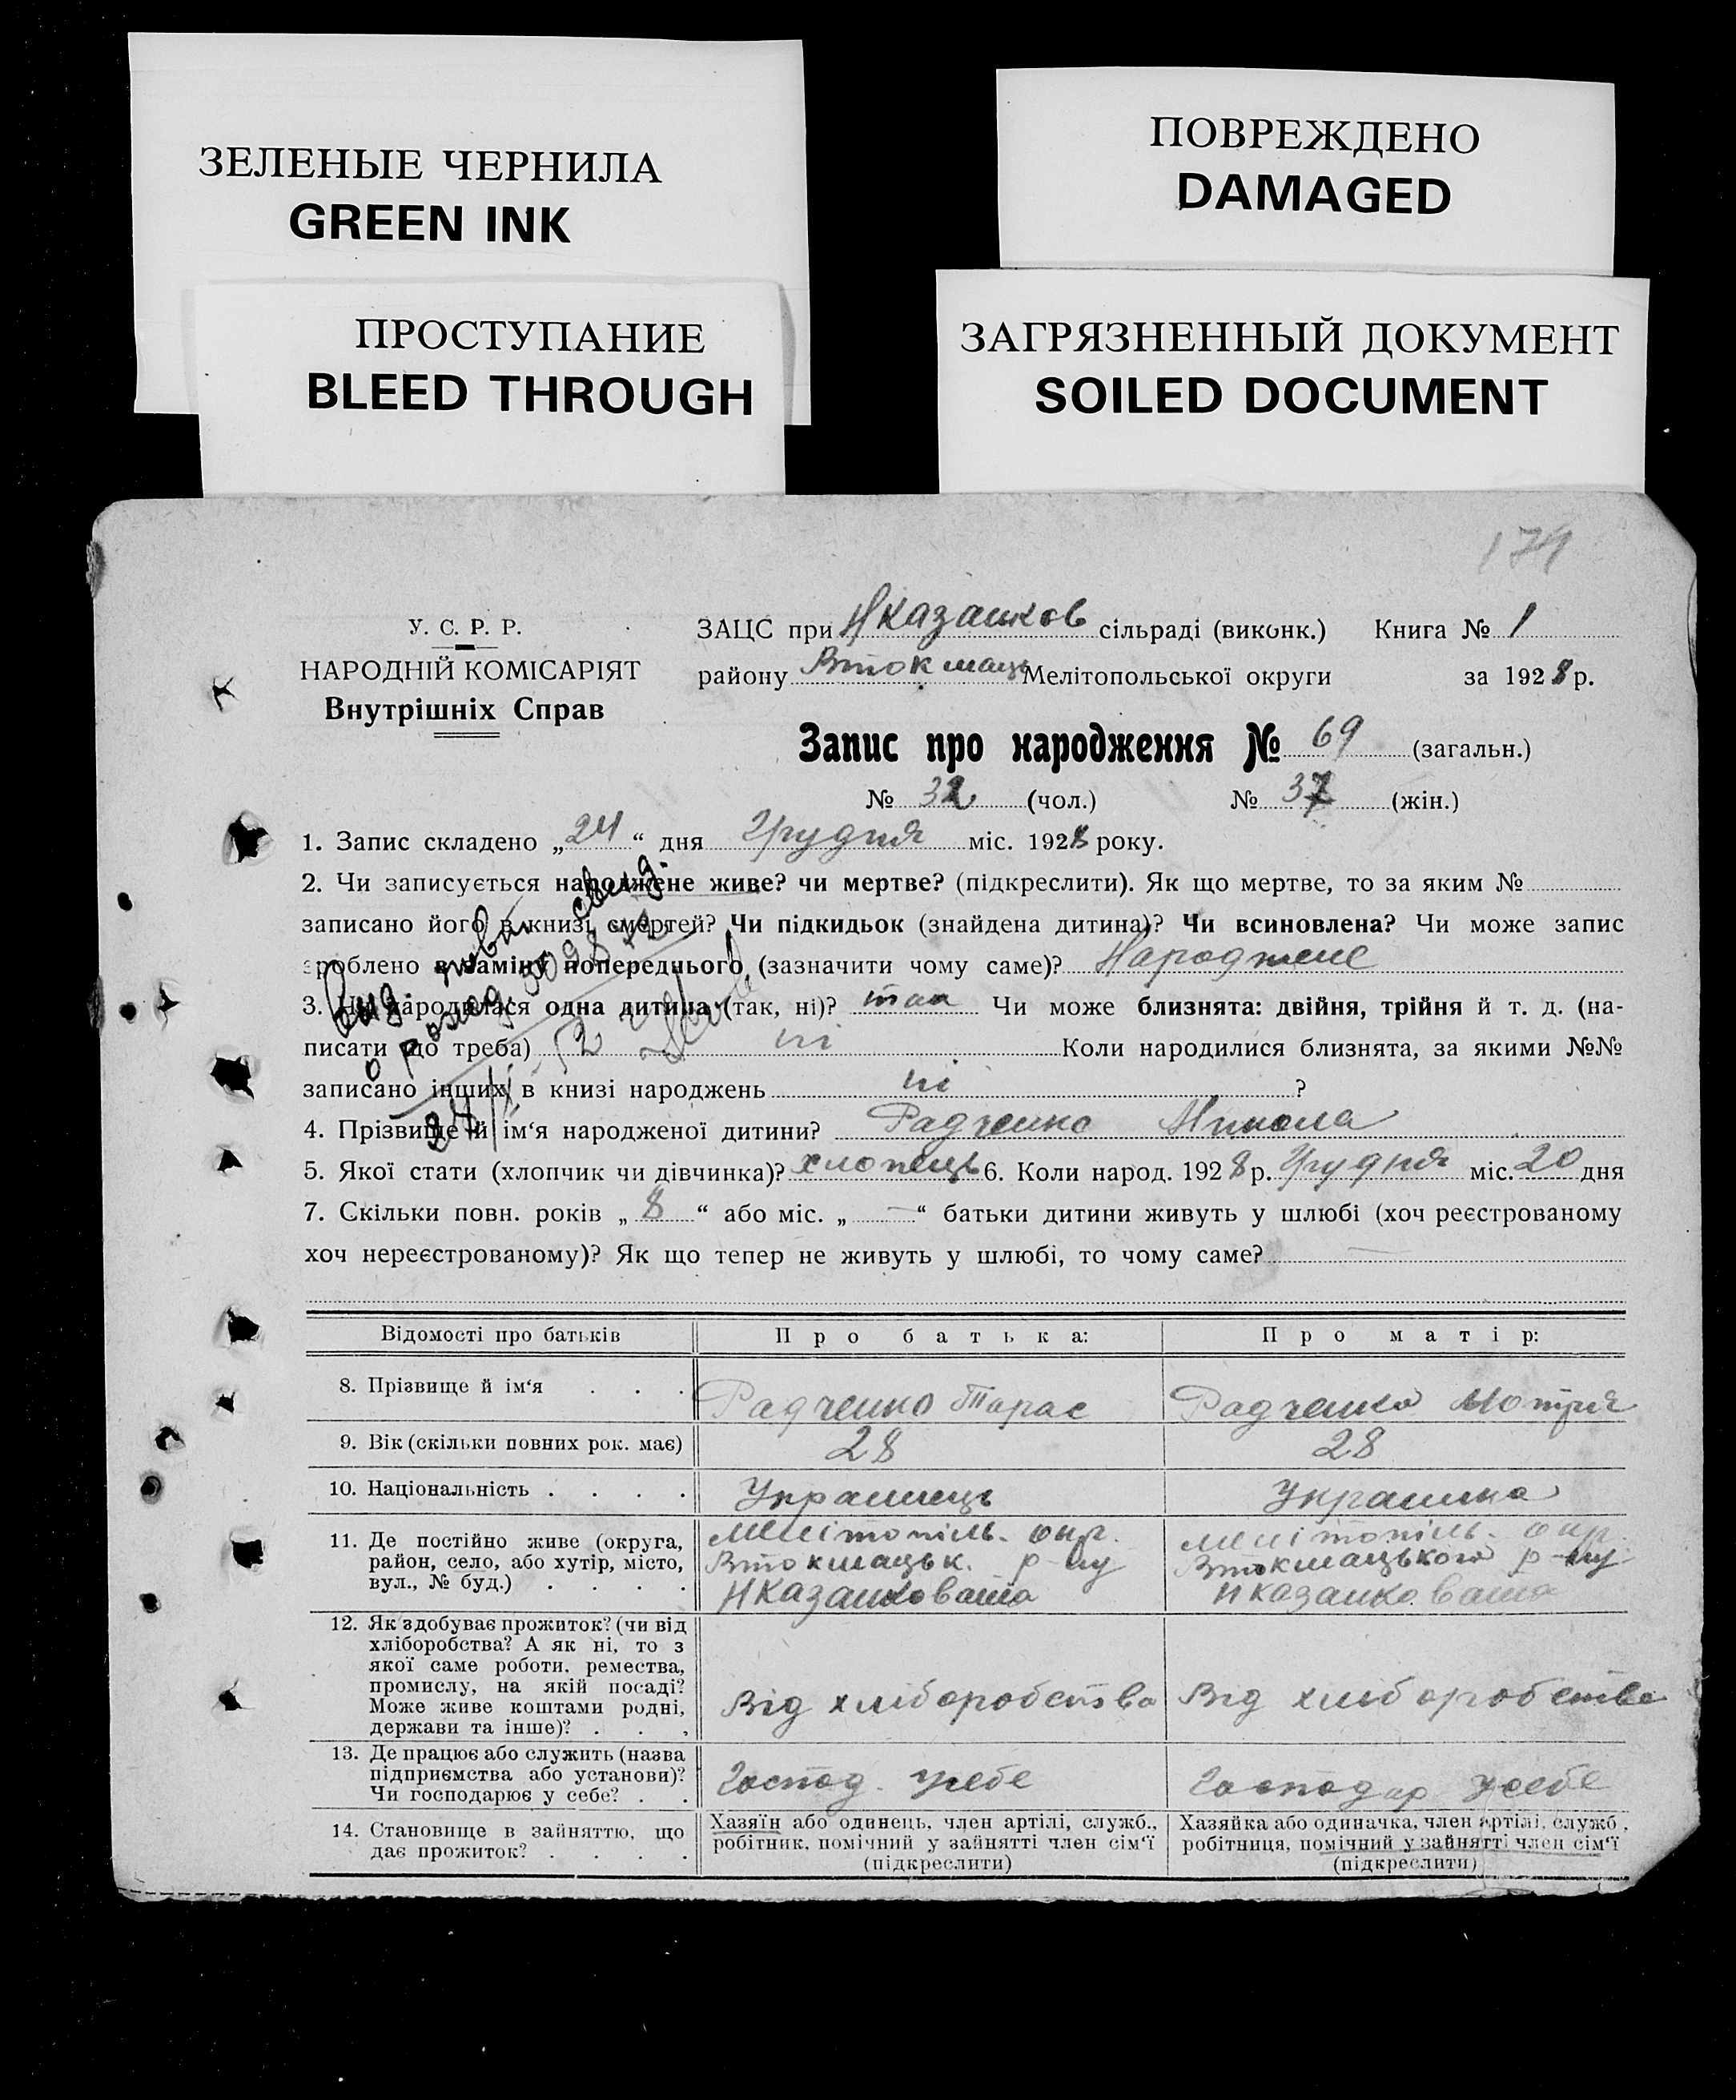 ЗЕЛЕНЫЕ ЧЕРНИЛА
GREEN INK
ПОВРЕЖДЕНО
DAMAGED
ПРОСТУПАНИЕ
BLEED THROUGH
ЗАГРЯЗНЕННЫЙ ДОКУМЕНТ
SOILED DOCUMENT
У. С. Р. Р.
НАРОДНІЙ КОМІСАРІЯТ
Внутрішніх Справ
ЗАЦС при Нказанков сільраді (виконк.) Книга № 1
району Втокмацьк Мелітопольської округи за 1928 р.
Запис про народження № 69 (загальн.)
№ 32 (чол.) № 37 (жін.)
1. Запис складено „24“ дня Грудня міс. 1928 року.
2. Чи записується народжене живе? чи мертве? (підкреслити). Як що мертве, то за яким №
записано його в книзі смертей? Чи підкидьок (знайдена дитина)? Чи всиновлена? Чи може запис
зроблено в заміну попереднього (зазначити чому саме)? Народжене
3. Чи народилася одна дитина (так, ні)? так Чи може близнята: двійня, трійня й т. д. (на-
писати що треба) ні Коли народилися близнята, за якими №№
записано інших в книзі народжень ні ?
4. Прізвище й ім‘я народженої дитини? Радченко Микола
5. Якої стати (хлопчик чи дівчинка)? хлопець 6. Коли народ. 1928 р. Грудня міс. 20 дня
7. Скільки повн. років „8“ або міс. „—“ батьки дитини живуть у шлюбі (хоч реєстрованому
хоч нереєстрованому)? Як що тепер не живуть у шлюбі, то чому саме?
Відомості про батьків Про батька: Про матір:
8. Прізвище й ім‘я . . . Радченко Тарас Радченко Мотря
9. Вік (скільки повних рок. має) 28 28
10. Національність . . . . Українець Українка
11. Де постійно живе (округа, район, село, або хутір, місто, вул., № буд.) . . . .
Мелітопіль. окр. Мелітопіль. окр.
Втокмацьк. р-ну Втокмацького р-ну
Нказанковата Нказанковата
12. Як здобуває прожиток? (чи від
хліборобства? А як ні, то з
якої саме роботи. ремества,
промислу, на якій посаді?
Може живе коштами родні,
держави та інше)? . . .
Від хліборобства Від хліборобства
13. Де працює або служить (назва
підприємства або установи)?
Чи господарює у себе? . .
Господ. усебе Господар усебе
14. Становище в зайняттю, що
дає прожиток? . . . .
Хазяїн або одинець, член артілі, служб.,
робітник, помічний у зайнятті член сім‘ї
(підкреслити)
Хазяйка або одиначка, член артілі, служб.,
робітниця, помічний у зайнятті член сім‘ї
(підкреслити)